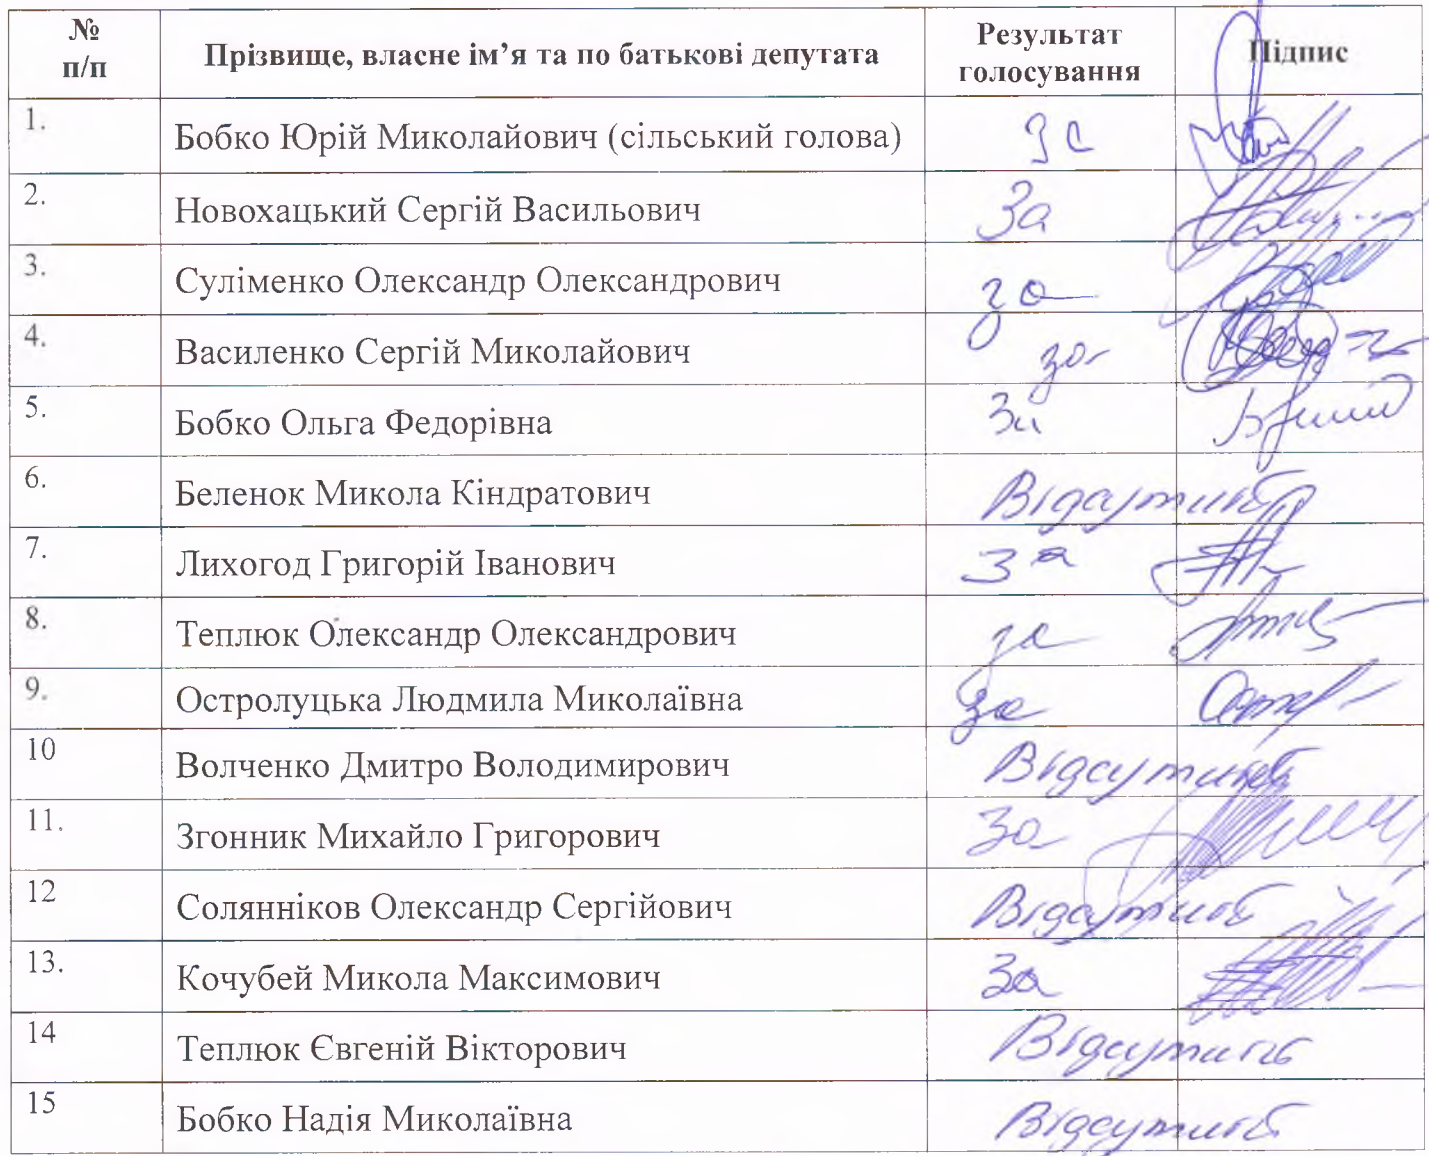 № п/п Прізвище, власне ім’я та по батькові депутата Результат голосування Підпис
1. Бобко Юрій Миколайович (сільський голова) за
2. Новохацький Сергій Васильович За
3. Суліменко Олександр Олександрович за
4. Василенко Сергій Миколайович за
5. Бобко Ольга Федорівна За
6. Беленок Микола Кіндратович Відсутній
7. Лихогод Григорій Іванович За
8. Теплюк Олександр Олександрович за
9. Остролуцька Людмила Миколаївна за
10 Волченко Дмитро Володимирович Відсутній
11. Згонник Михайло Григорович За
12 Солянніков Олександр Сергійович Відсутній
13. Кочубей Микола Максимович За
14 Теплюк Євгеній Вікторович Відсутній
15 Бобко Надія Миколаївна Відсутній